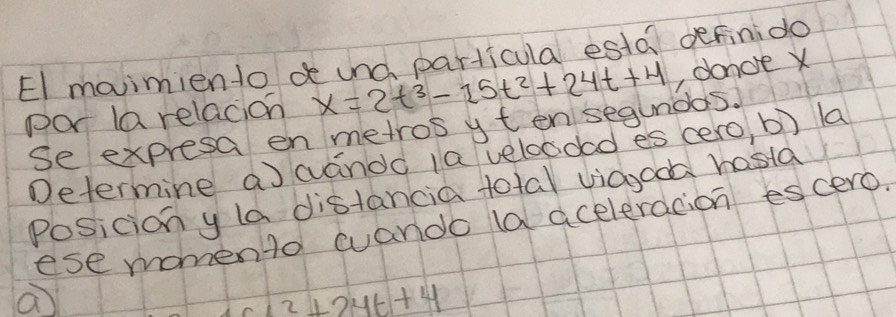 El maimiento de una particula está definido
por la relación x = 2t³ - 15t² + 24t + 4, donde x
Se expresa en metros y t en segundos.
Determine a) cuándo la velocidad es cero, b) la
posición y la distancia total viagada hasta
ese momento cuando la aceleración es cero.
a)
t² + 24t + 4